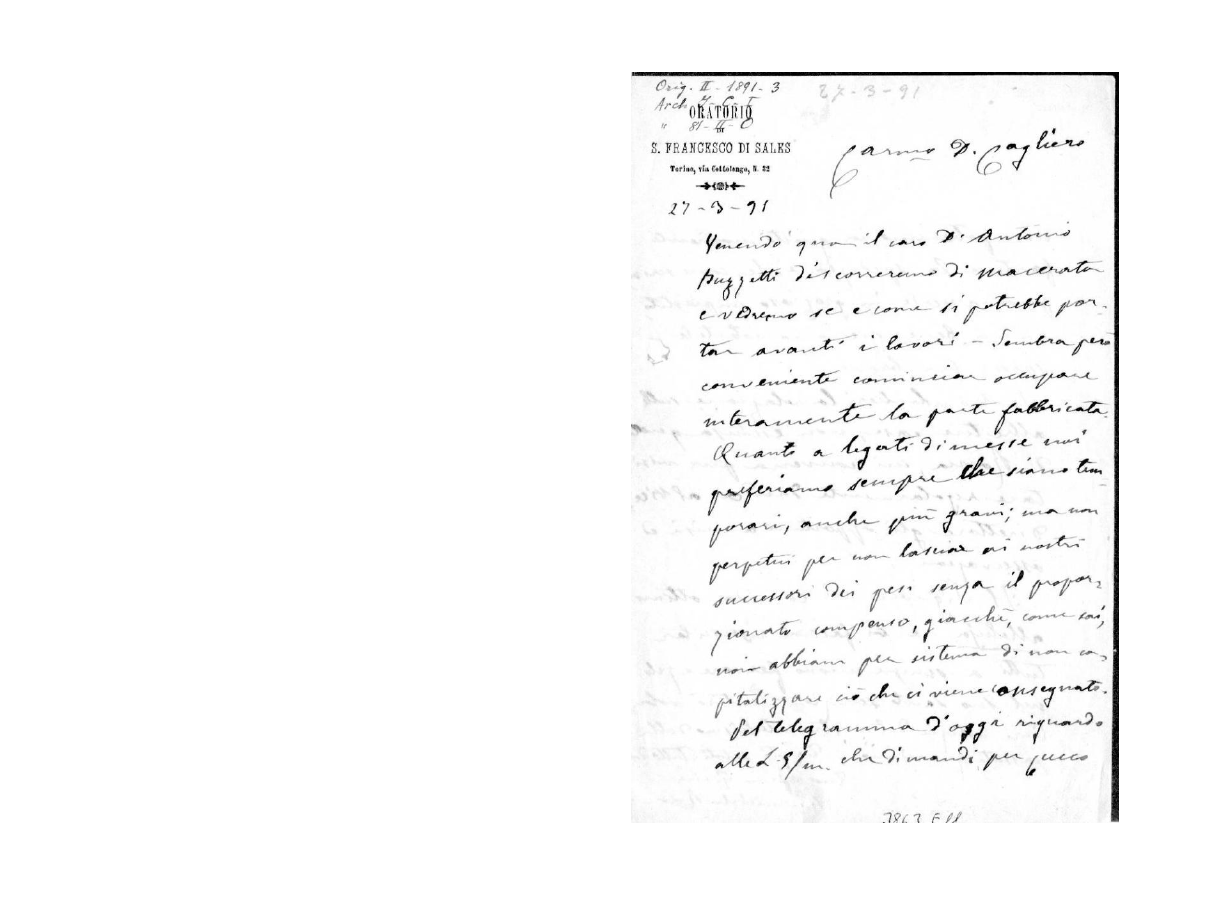 Orig. II - 1891 - 3
27-3-91
Arch.
" 81-II-O
ORATORIO
DI
S. FRANCESCO DI SALES
Torino, via Cottolengo, N. 32
27-3-91
Carmo D. Cagliero
Venendo qua il caro D. Antonio
Buzzetti discorreremo di Macerata
e vedremo se e come si potrebbe por-
tar avanti i lavori - Sembra però
conveniente cominciar occupare
interamente la parte fabbricata.
Quanto a legati di messe noi
preferiamo sempre che siano tem
porari, anche più gravi; ma non
perpetui per non lasciar ai nostri
successori dei pesi senza il propor-
zionato compenso, giacchè, come sai,
noi abbiam per sistema di non ca-
pitalizzare ciò che ci viene consegnato.
Sul telegramma d'oggi riguardo
alle L. 5/m. che dimandi per